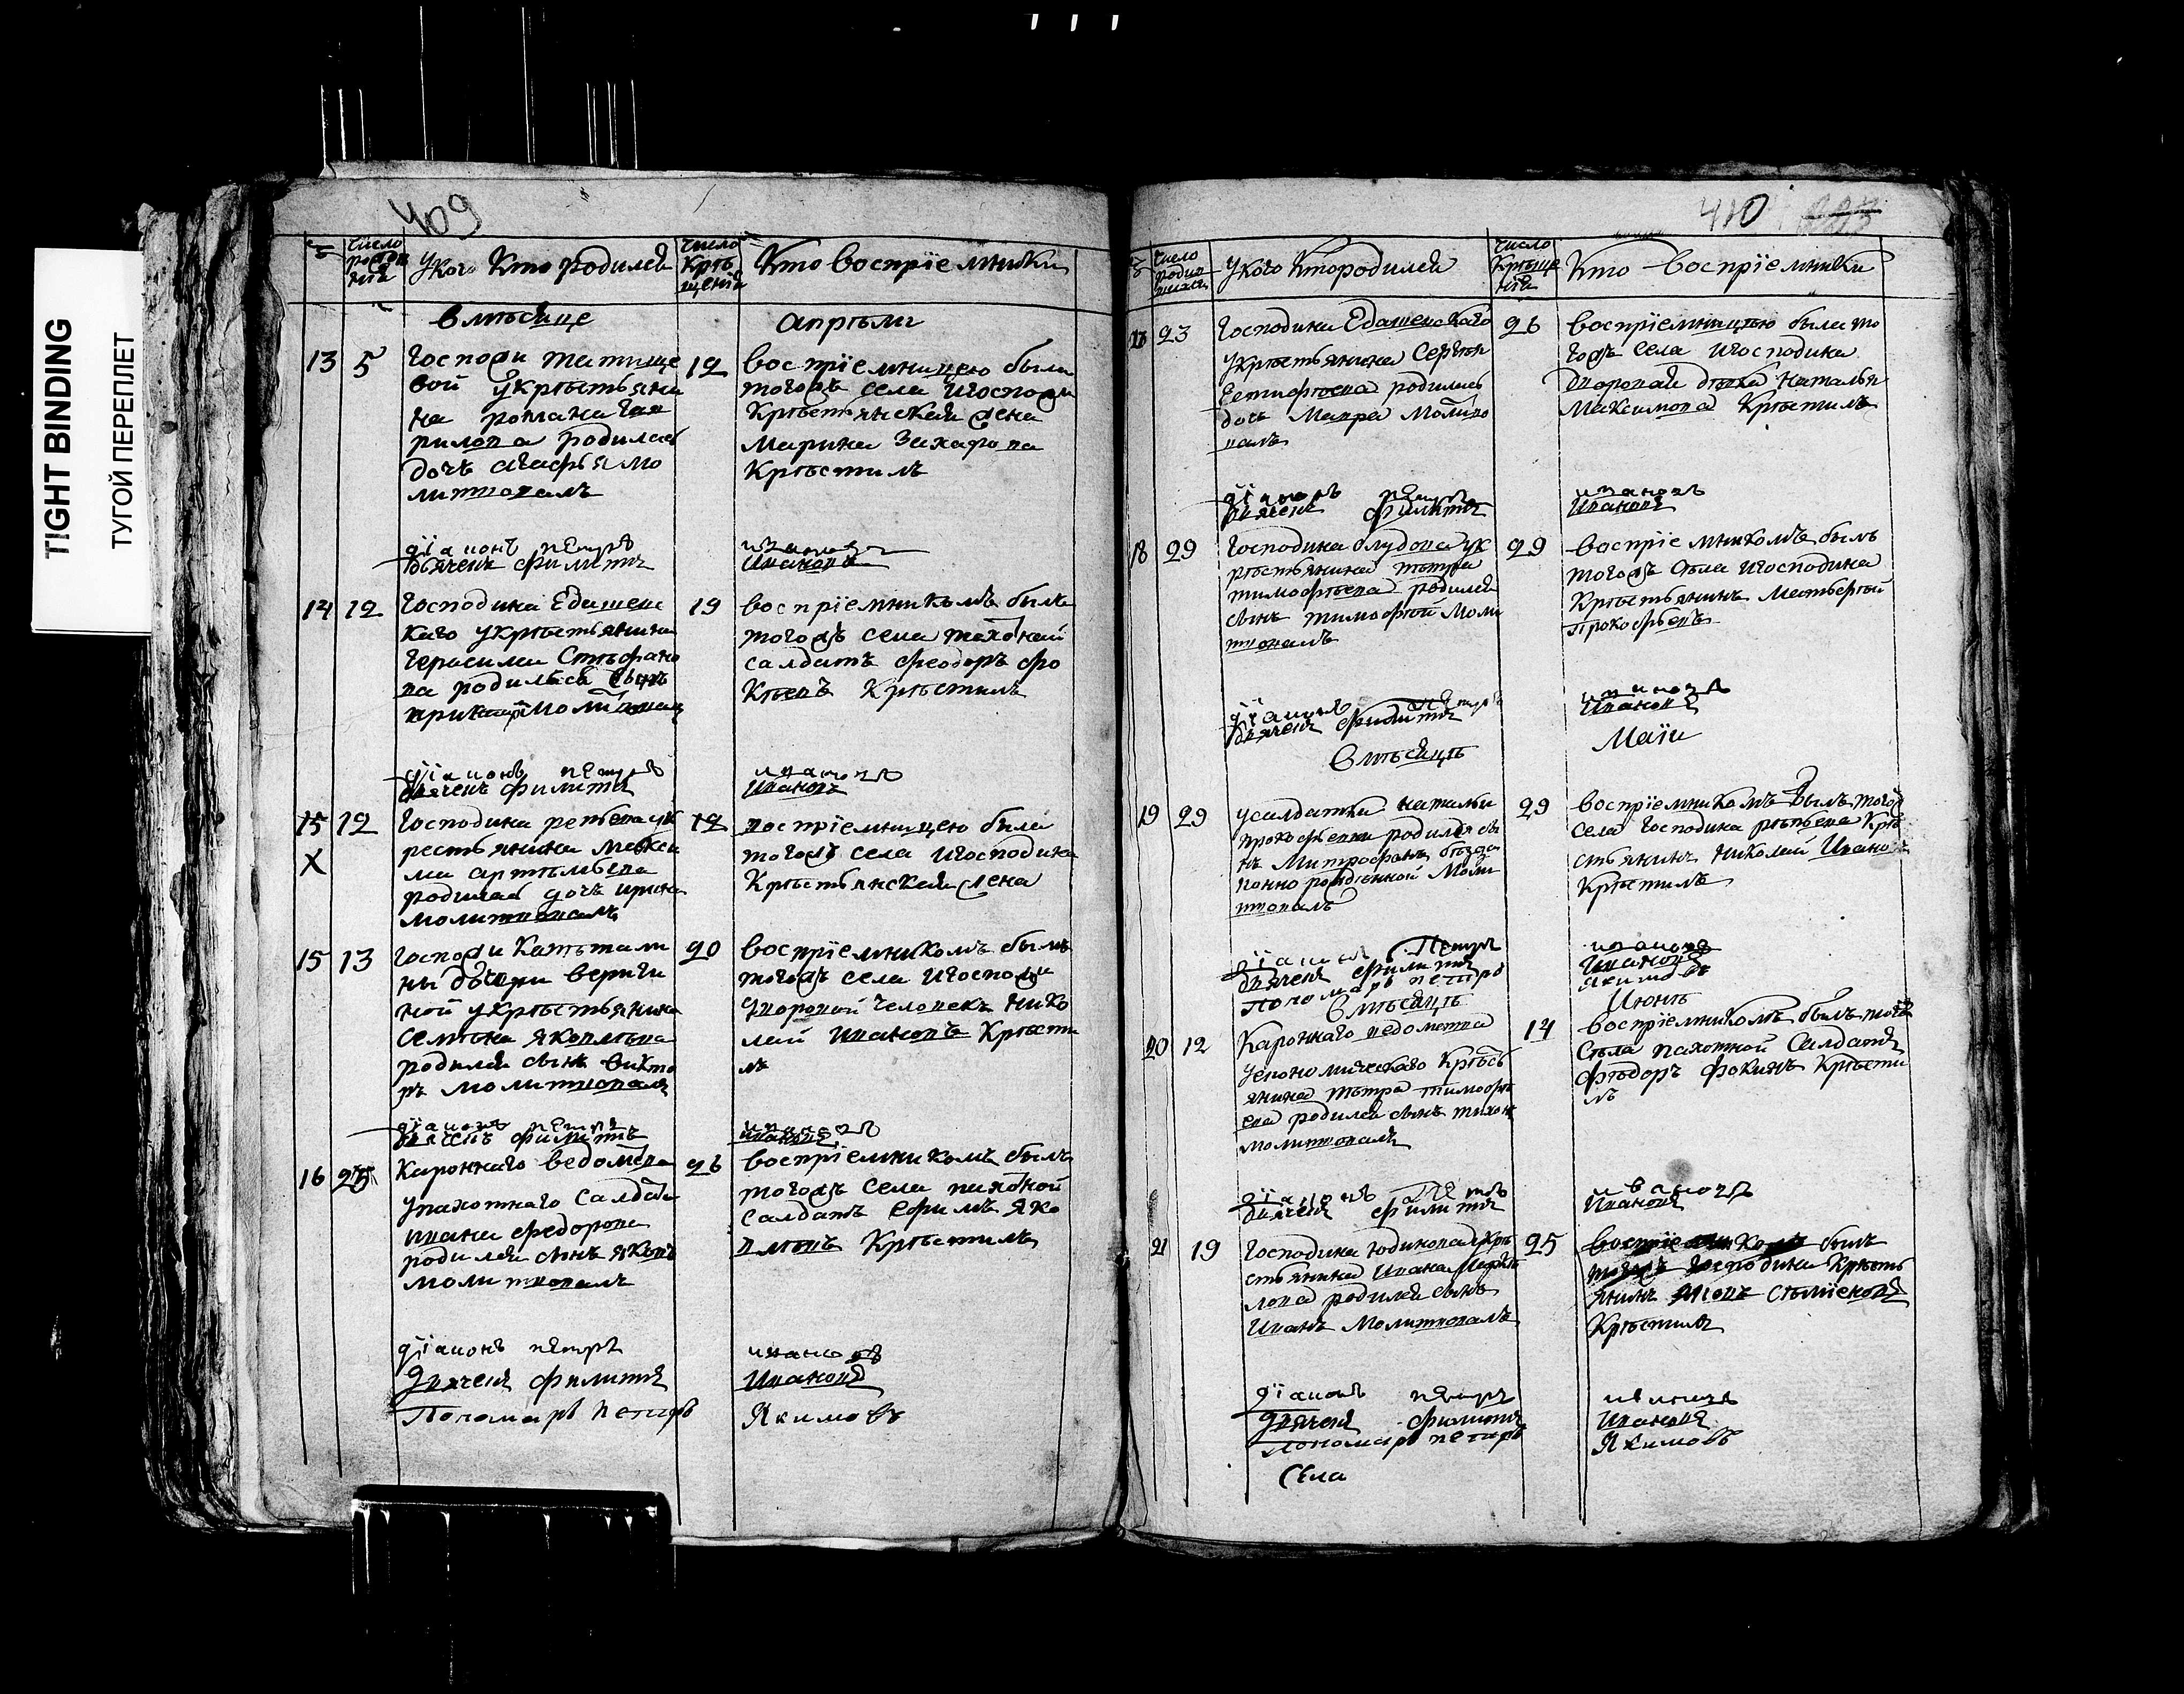 TIGHT BINDING
ТУГОЙ ПЕРЕПЛЕТ
409
число рожде нїя
У кого Кто родился
число Крѣ щенїя
Кто воспрїемники
в мѣсяце
апрѣли
13 5
Госпожи татище
вой у крѣстьяни
на романа гав
рилова родилась
дочь агафья мо
литвовалъ
12
воспрїемницею была
тогожъ села и госпожи
Крѣстьянская жена
Марина Захарова
Крѣстилъ
дїаконъ пётръ
дьячекъ филиппъ
ивановъ
Ивановъ
14 12
Господина Едашевс
каго у крѣстьянина
герасима Стѣфано
ва родился сынъ
19
воспрїемникомъ былъ
тогожъ села пахотнай
салдатъ феодоръ фо
Кѣевъ Крѣстилъ
дїаконъ пётръ
дьячекъ филиппъ
ивановъ
Ивановъ
15 12
Х
Господина репьева у к
рестьянина Макси
ма артѣмьева
родилас дочь ирина
молитвовалъ
12
воспрїемницею была
тогожъ села и господина
Крѣстьянская жена
15 13
госпожи Капѣтали
ны дѣвери вериги
ной у крѣстьянина
Семѣна яковлѣва
родился сынъ викто
ръ молитвовалъ
20
воспрїемникомъ былъ
тогожъ села и госпожи
дворовой человекъ Нико
лай Ивановъ Крѣсти
лъ
дїаконъ пётръ
дьячекъ филиппъ
ивановъ
Ивановъ
16 25
Кароннаго ведомства
у пахотнаго салдата
ивана федорова
родился сынъ яковъ
молитвовалъ
26
воспрїемникомъ былъ
тогожъ села пахотной
салдатъ Ефимъ яко
влѣвъ Крѣстилъ
дїаконъ пётръ
Дьячекъ филиппъ
Пономарь петръ
ивановъ
Ивановъ
Якимовъ
410
число родив шихся
У кого Кто родился
Число Крѣще нїя
Кто воспрїемники
17 23
Господина Едашевскаго
у крѣстьянина Сергѣя
Естифѣева родилась
дочь Мавра Молитво
валъ
26
воспрїемницею была то
гожъ села и господина
дворовая дѣвка Наталья
Максимова Крѣстилъ
дїаконъ пётръ
дьячекъ филиппъ
ивановъ
Ивановъ
18 29
Господина блудова у к
рѣстьянина пѣтра
тимофѣева родился
сынъ тимофѣй моли
твовалъ
29
воспрїемникомъ былъ
тогожъ сѣла и господина
Крѣстьянинъ Матьвѣй
Прокофьевъ
дїаконъ пётръ
дьячекъ филиппъ
ивановъ
Ивановъ
В мѣсяцѣ
Маїи
19 29
у салдатки наталья
прокофьевни родился сы
нъ Митрофанъ безза
конно рожденной Моли
твовалъ
29
воспрїемникомъ былъ тогож
села Господина рѣпьева Крѣ
стьянинъ Николай Ивановъ
Крѣстилъ
дїаконъ Пётръ
дьячекъ филиппъ
пономарь петръ
ивановъ
Ивановъ
якимовъ
В мѣсяцѣ
Июнѣ
20 12
Кароннаго ведомства
у економическаго Крѣсть
янина пѣтра тимофѣ
ева родился сынъ тихон
молитвовалъ
14
воспрїемникомъ былъ тогожъ
Сѣла пахотной Салдатъ
фѣдоръ фокинъ Крѣсти
лъ
дїаконъ Пётръ
дьячекъ филиппъ
ивановъ
Ивановъ
21 19
Господина Юдинова у Крѣ
стьянина Ивана
лова родился сынъ
Иванъ Молитвовалъ
25
воспрїемникомъ былъ
господина Крѣсть
янинъ
Крѣстилъ
дїаконъ пётръ
Дьячекъ филиппъ
Пономарь петръ
ивановъ
Ивановъ
Якимовъ
Села